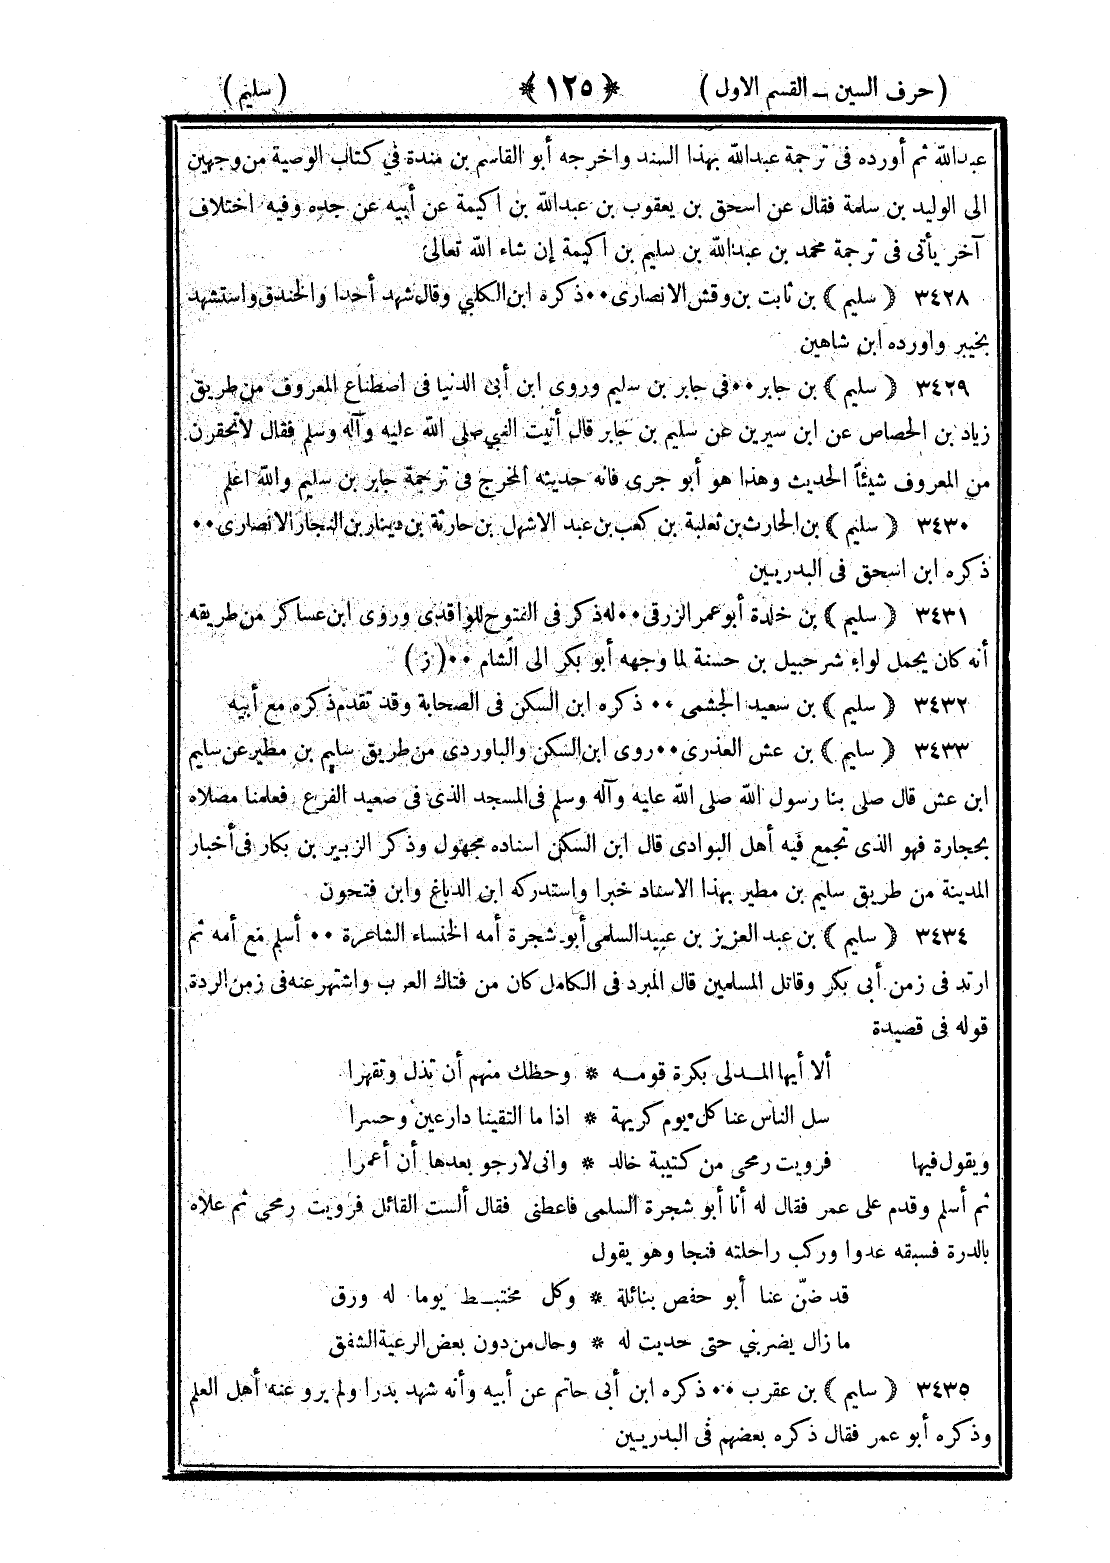 (حرف السين ــ القسم الاول) ﴿١٢٥﴾ (سليم)
عبدالله ثم أورده فى ترجمة عبدالله بهذا السند واخرجه أبو القاسم بن مندة في كتاب الوصية من وجهين
الى الوليد بن سلمة فقال عن اسحق بن يعقوب بن عبدالله بن اكيمة عن أبيه عن جده وفيه اختلاف
آخر يأتى فى ترجمة محمد بن عبدالله بن سليم بن اكيمة إن شاء الله تعالى
٣٤٢٨ ﴿ سليم ﴾ بن ثابت بن وقش الانصارى ٠٠ ذكره ابن الكلبي وقال شهد أحدا والخندق واستشهد
بخيبر واورده ابن شاهين
٣٤٢٩ ﴿ سليم ﴾ بن جابر ٠٠ فى جابر بن سليم وروى ابن أبى الدنيا فى اصطناع المعروف من طريق
زياد بن الحصاص عن ابن سيرين عن سليم بن جابر قال أتيت النبي صلى الله عليه وآله وسلم فقال لاتحقرن
من المعروف شيئاً الحديث وهذا هو أبو جرى فانه حديثه المخرج فى ترجمة جابر بن سليم والله اعلم
٣٤٣٠ ﴿ سليم ﴾ بن الحارث بن ثعلبة بن كعب بن عبد الاشهل بن حارثة بن دينار بن النجار الانصارى ٠٠
ذكره ابن اسحق فى البدريين
٣٤٣١ ﴿ سليم ﴾ بن خلدة أبو عمر الزرقى ٠٠ له ذكر فى الفتوح للواقدى وروى ابن عساكر من طريقه
أنه كان يحمل لواء شرحبيل بن حسنة لما وجهه أبو بكر الى الشام ٠٠ (ز)
٣٤٣٢ ﴿ سليم ﴾ بن سعيد الجشمى ٠٠ ذكره ابن السكن فى الصحابة وقد تقدم ذكره مع أبيه
٣٤٣٣ ﴿ سليم ﴾ بن عش العذرى ٠٠ روى ابن السكن والباوردى من طريق سليم بن مطير عن سليم
ابن عش قال صلى بنا رسول الله صلى الله عليه وآله وسلم فى المسجد الذى فى صعيد القرع فعلمنا مصلاه
بحجارة فهو الذى تجمع فيه أهل البوادى قال ابن السكن اسناده مجهول وذكر الزبير بن بكار فى أخبار
المدينة من طريق سليم بن مطير بهذا الاسناد خبرا واستدركه ابن الدباغ وابن فتحون
٣٤٣٤ ﴿ سليم ﴾ بن عبد العزيز بن عبيد السلمى أبو شجرة أمه الخنساء الشاعرة ٠٠ أسلم مع أمه ثم
ارتد فى زمن أبى بكر وقاتل المسلمين قال المبرد فى الكامل كان من فتاك العرب واشتهر عنه فى زمن الردة
قوله فى قصيدة
ألا أيها المـدلى بكرة قومـه * وحظك منهم أن تذل وتقهرا
سل الناس عنا كل يوم كريهة * اذا ما التقينا دارعين وحسرا
ويقول فيها فرويت رمحى من كتيبة خالد * وانى لارجو بعدها أن أعمرا
ثم أسلم وقدم على عمر فقال له أنا أبو شجرة السلمى فاعطنى فقال ألست القائل فرويت رمحى ثم علاه
بالدرة فسبقه عدوا وركب راحلته فنجا وهو يقول
قد ضنّ عنا أبو حفص بنائلة * وكل مختبـط يوما له ورق
ما زال يضربني حتى حديت له * وحال من دون بعض الرعية الشفق
٣٤٣٥ ﴿ سليم ﴾ بن عقرب ٠٠ ذكره ابن أبى حاتم عن أبيه وأنه شهد بدرا ولم يرو عنه أهل العلم
وذكره أبو عمر فقال ذكره بعضهم فى البدريين